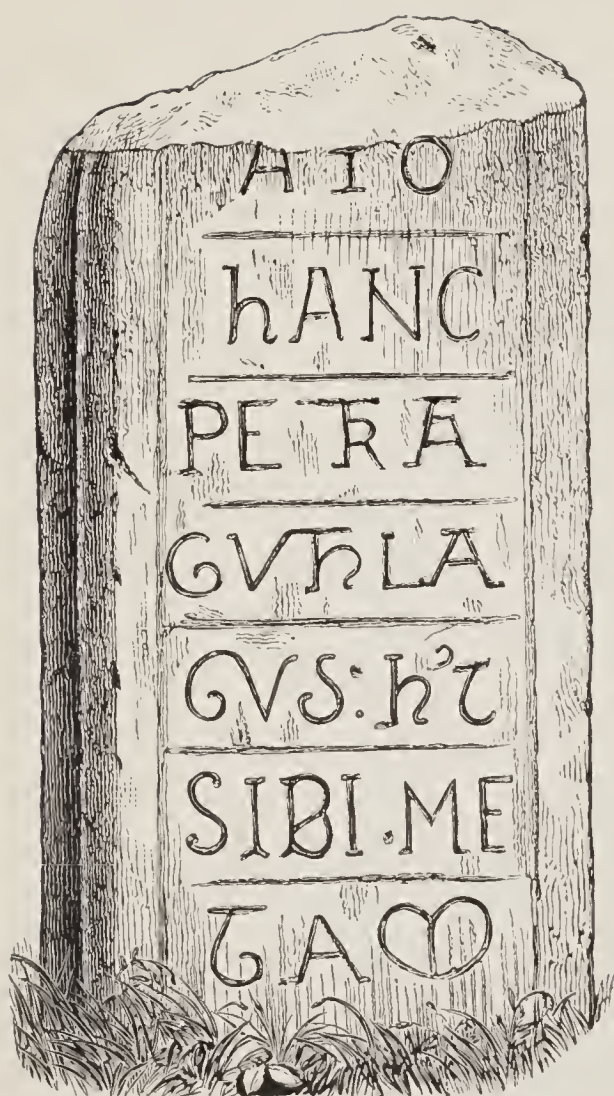 AIO
hANC
PETRĀ
GVThLA
CVS: h'T
SIBI.ME
TAM